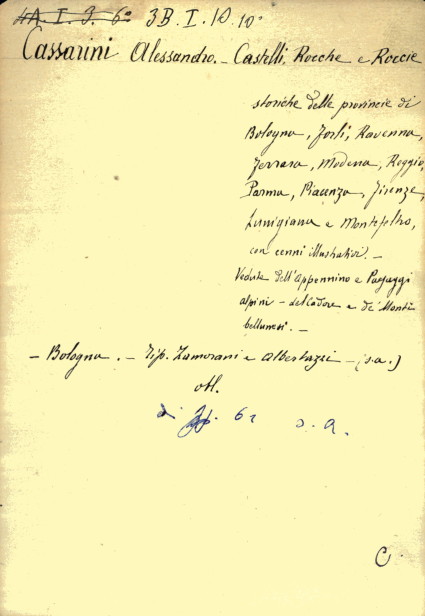 4A. I. 3. 6º 3B. I. 10. 10º
Cassarini Alessandro. – Castelli, Rocche e Roccie
storiche delle provincie di
Bologna, Forlì, Ravenna,
Ferrara, Modena, Reggio,
Parma, Piacenza, Firenze,
Lunigiana e Montefeltro,
con cenni illustrativi. –
Vedute dell'Appennino e Paesaggi
alpini – del Cadore e de' Monti
bellunesi. –
– Bologna. – Tip. Zamorani e Albertazzi – (s.a.)
obl.
di pp. 62 s. a.
C